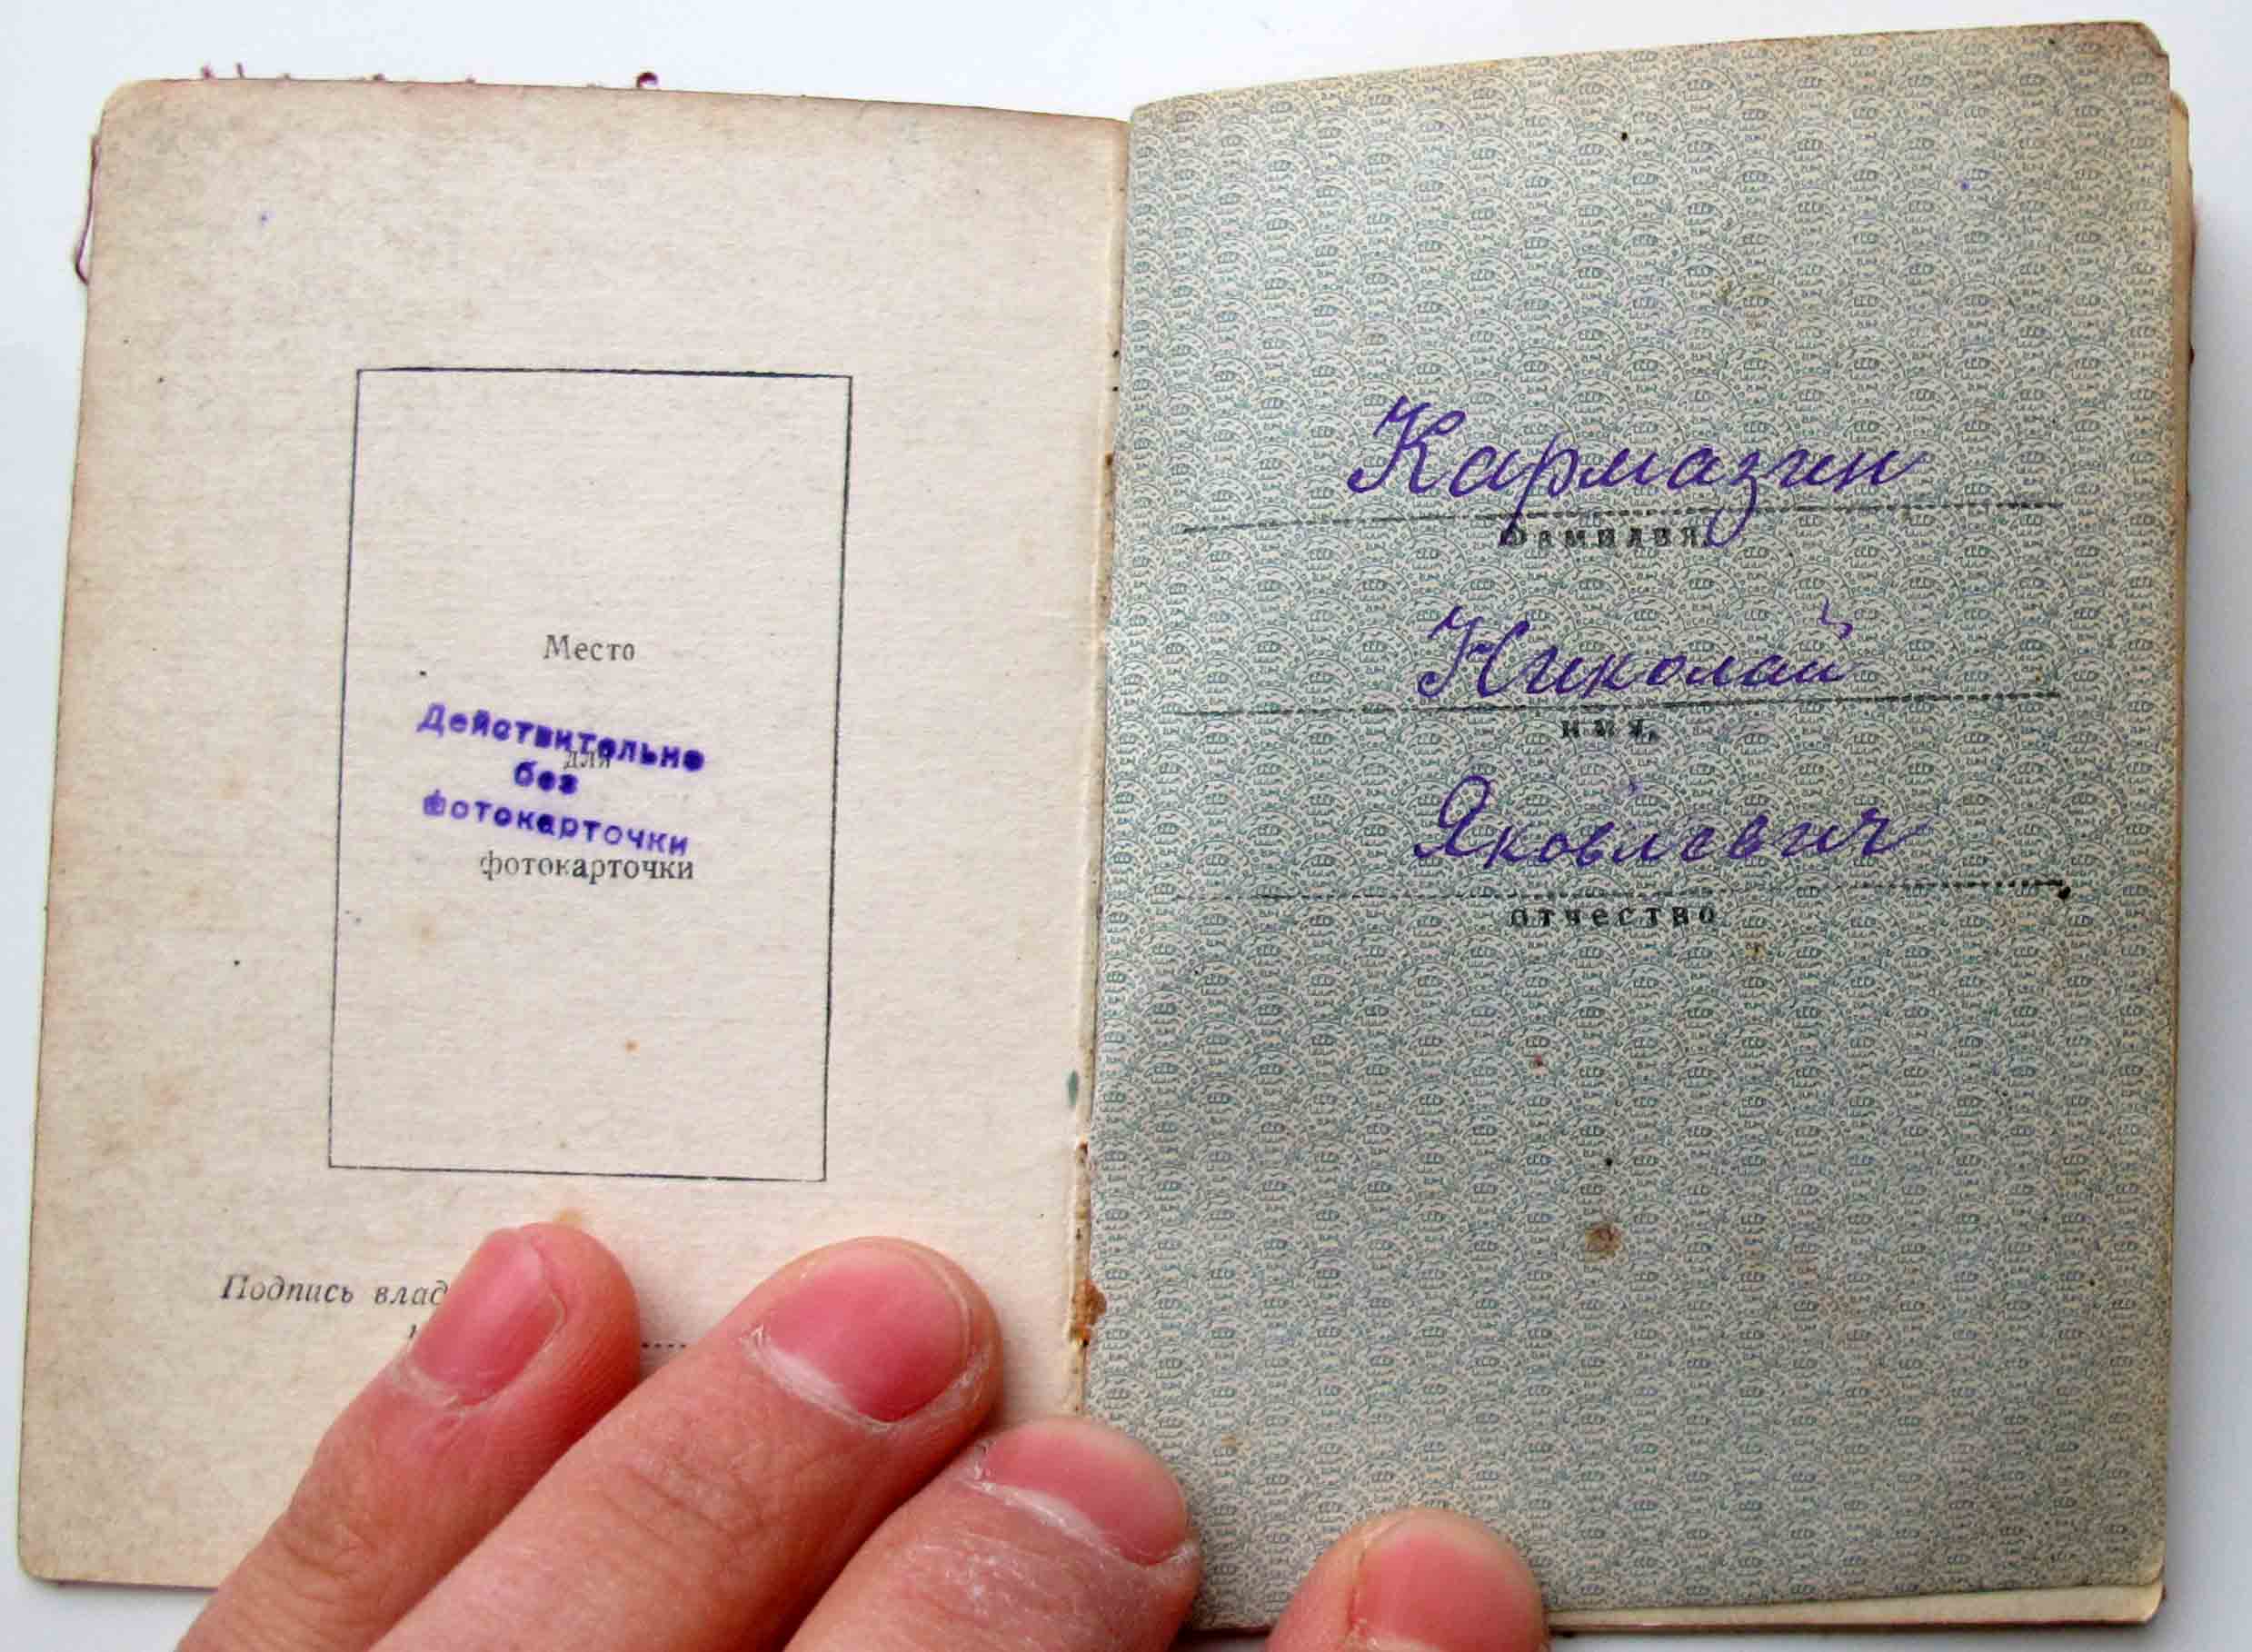 Место
Действительно
для
без
фотокарточки
фотокарточки
Подпись влад
Кармазин
фамилия
Николай
имя
Яковлевич
отчество